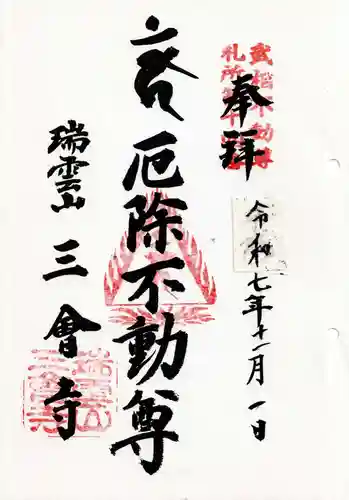 奉拝
令和七年十一月一日
厄除不動尊
瑞雲山
三會寺